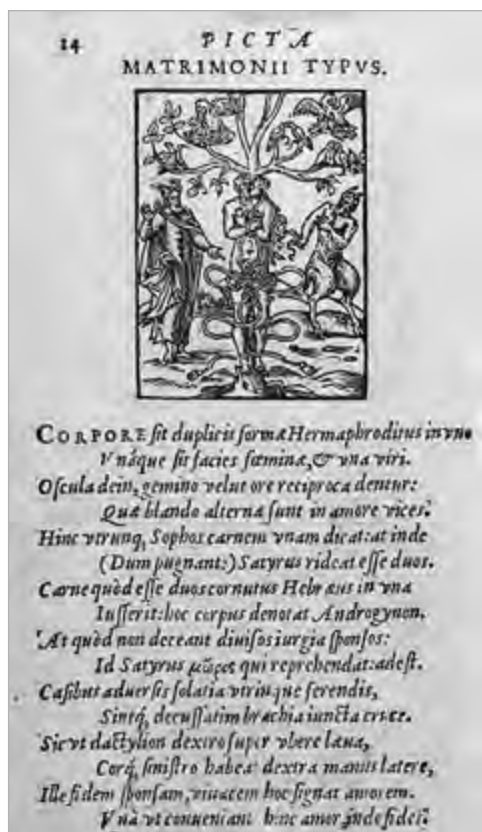 14
PICTA
MATRIMONII TYPVS.
CORPORE sit duplicis formæ Hermaphroditus in vno
Vnáque sit facies fœminæ, & vna viri.
Oscula dein, gemino velut ore reciproca dentur:
Quæ blando alterna sunt in amore vices.
Hinc vtrunq, Sophos carnem vnam dicat: at inde
(Dum pugnant:) Satyrus rideat esse duos.
Carne quòd esse duos cornutus Hebræus in vna
Iusserit: hoc corpus denotat Androgynon.
At quòd non deceant diuisos iurgia sponsos:
Id Satyrus μῶρος qui reprehendat: adest.
Casibus aduersis solatia vtrinque ferendis,
Sintq, decussatim brachia iuncta cruce.
Sic vt dactylion dextro super vbere læua,
Corq, sinistro habeat dextra manus latere,
Ille fidem sponsam, viuacem hoc signat amorem.
Vnà vt conueniant hinc amor, inde fides.